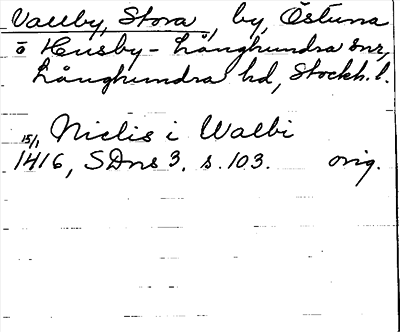 Vallby, Stora, by, Östuna
o Husby-Långhundra snr,
Långhundra hd, Stockh. l.
Niclis i Walbi
15/1 1416, SDns 3. s. 103. orig.